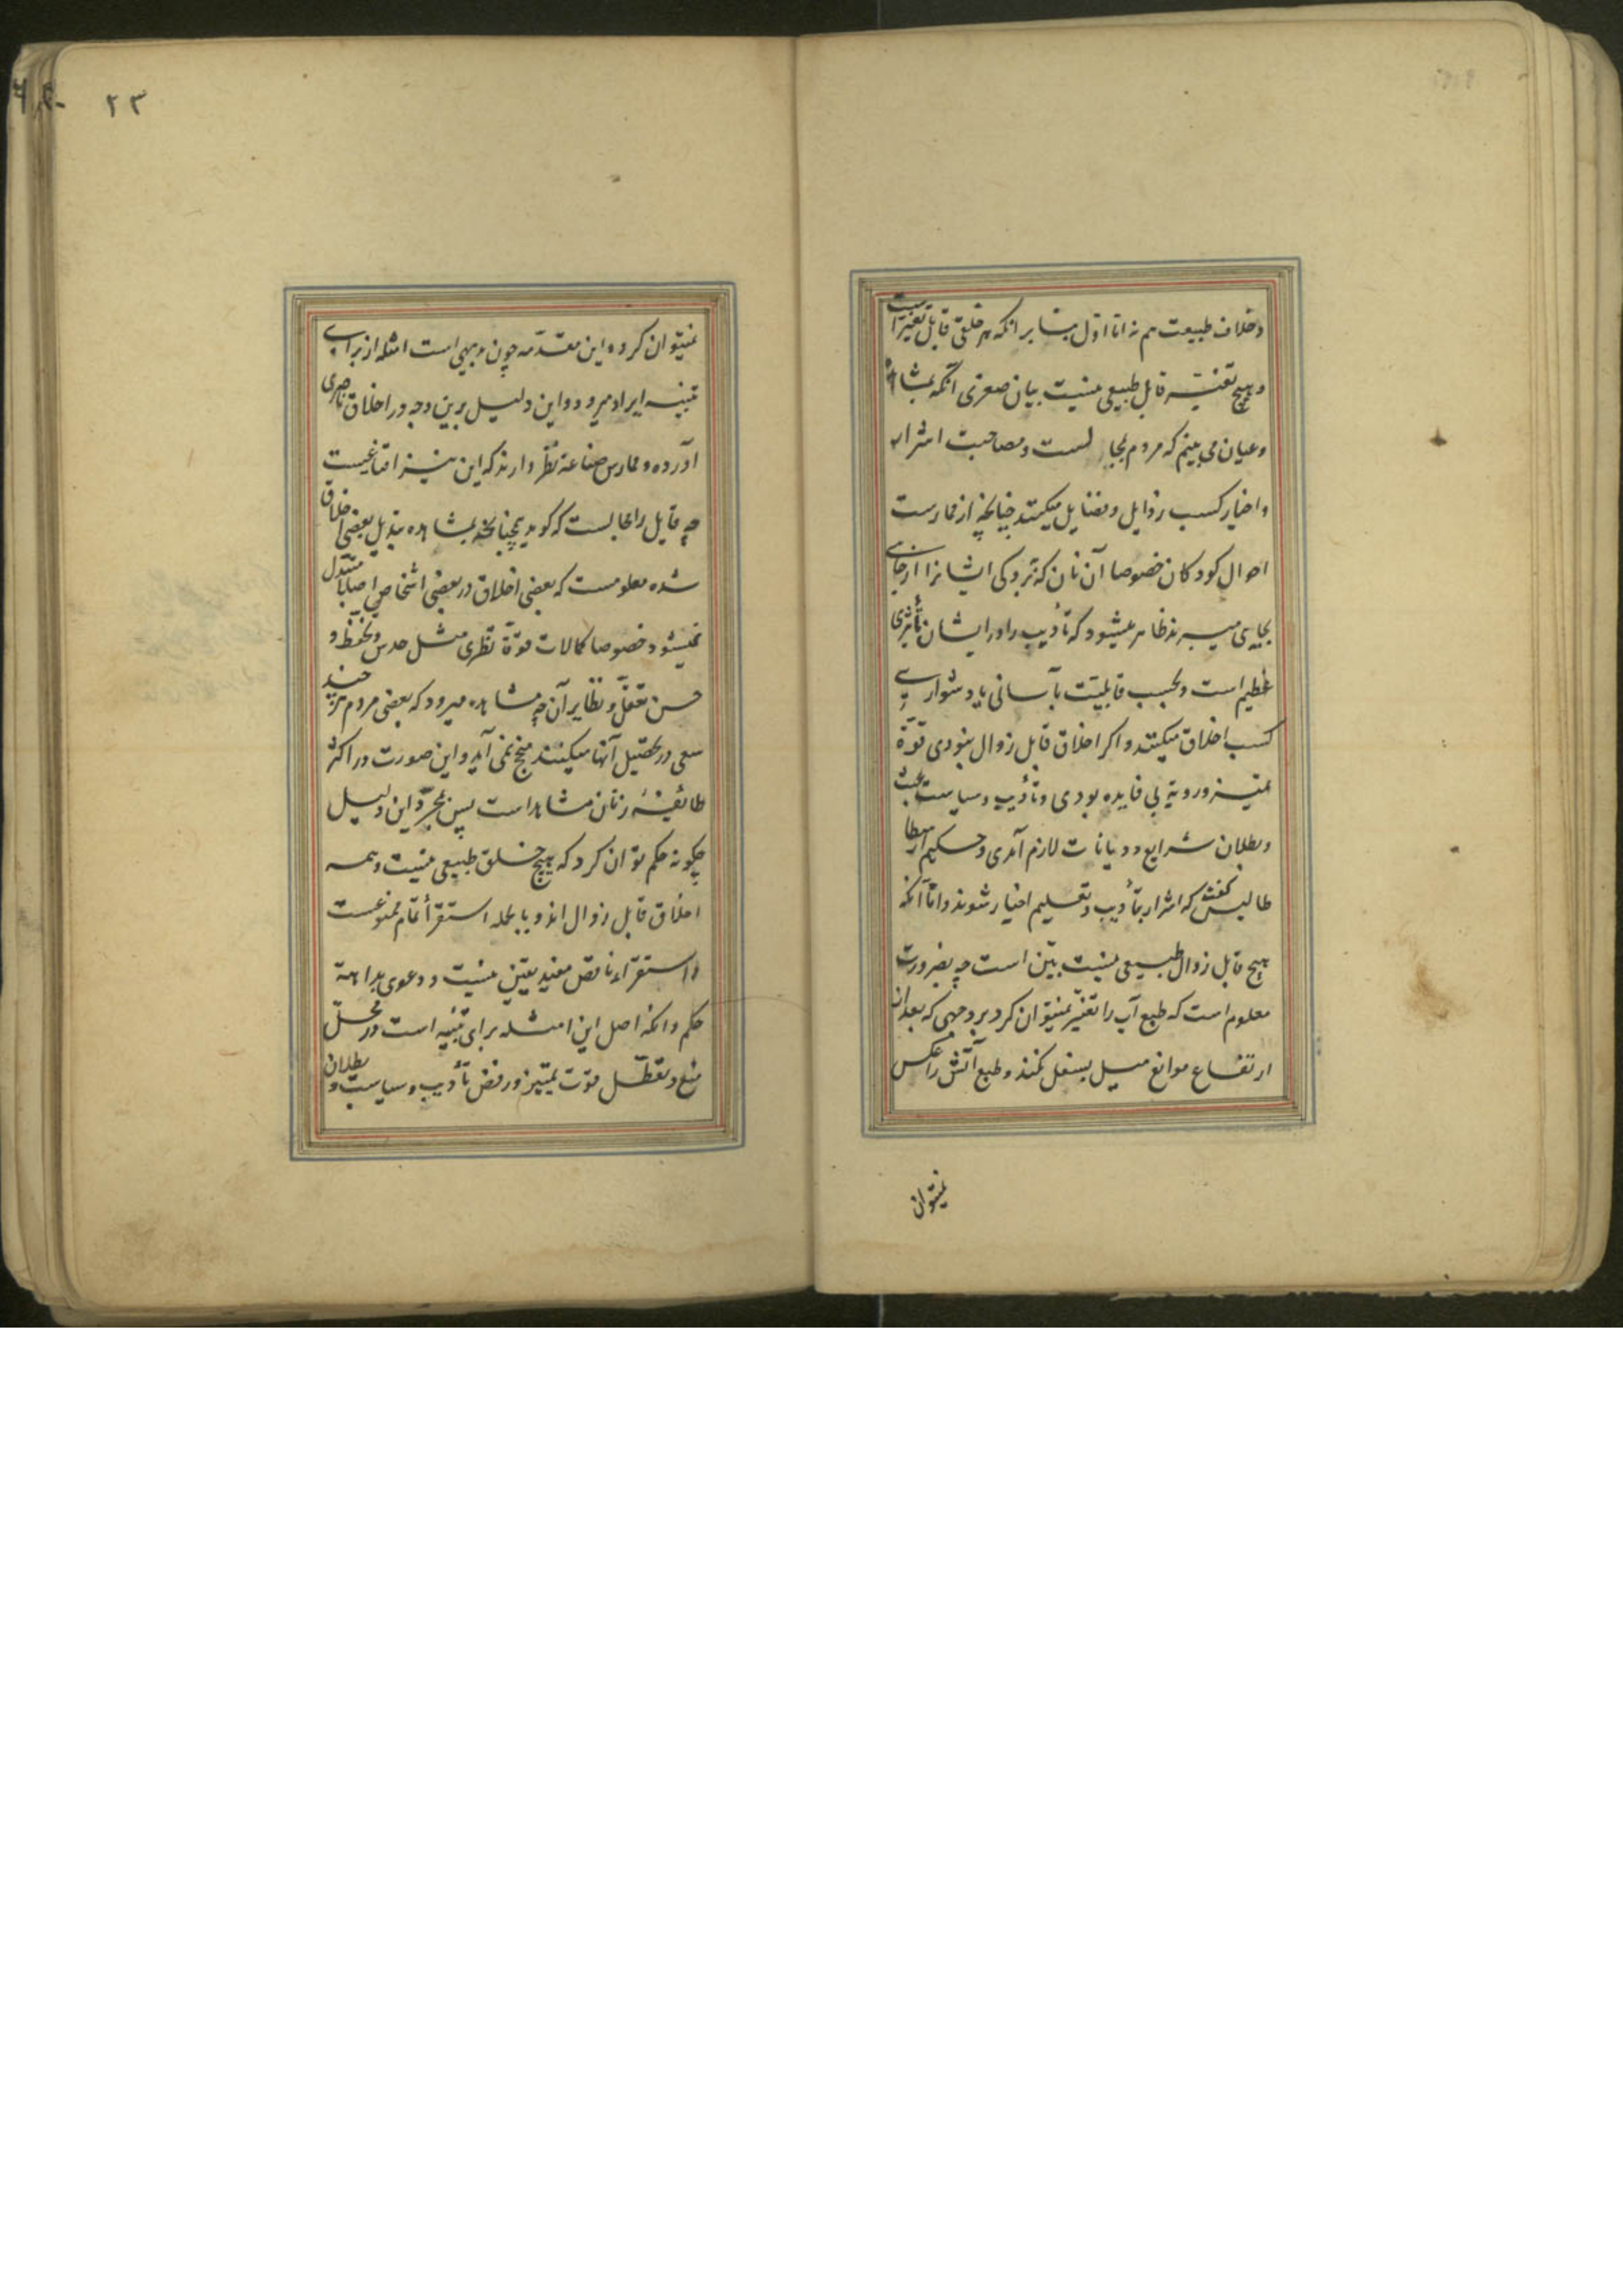 وخلاف طبیعت هم نه اما اوّل بنا بر انکه هر خلقی قابل تغیّر است
و هیچ تغیّر قابل طبیعی نیست بیان صغری آنکه بمشاهده
وعیان می بینم که مردم بمجالست ومصاحبت اشرار
واخیار کسب رذایل وفضایل میکنند چنانچه از ممارست
احوال کودکان خصوصا آنان که ببردکی ایشانرا از جایی
بجایی میبرند ظاهر میشود که تأدیب را در ایشان تأثیری
عظیم است وبحسب قابلیّت بآسانی یا دشواری
کسب اخلاق میکنند واکر اخلاق قابل زوال نبودی قوّة
تمیز و رویة بی فایده بودی وتأدیب وسیاست عبث
وبطلان شرایع ودیانات لازم آمدی وحکیم ارسطا
طالیس کفته که اشرار بتأدیب وتعلیم اخیار شوند واما آنکه
هیچ قابل زوال طبیعی نیست بیّن است چه بضرورت
معلوم است که طبع آب را تغیّر نمیتوان کرد بر وجهی که بعد از
ارتفاع موانع میل بسفل نکند وطبع آتش را عکس
نمیتوان
۲۳
نمیتوان کرد واین مقدّمه چون بدیهی است امثله از برای
تنبیه ایراد میرود واین دلیل برین وجه در اخلاق ناصری
آورده وممارس صناعة نظر داند که این نیز اقناعیست
چه قایل را مجالست که کوید همچنانچه بمشاهده تبدیل بعضی اخلاق
شده معلومست که بعضی اخلاق در بعضی اشخاص اصلا متبدل
نمیشود خصوصا کمالات قوّة نظری مثل حدس وتحفّظ و
حسن تعقّل ونظایر آن چه مشاهده میرود که بعضی مردم هرچند
سعی در تحصیل آنها میکنند منجح نمی آید واین صورت در اکثر
طائفهٔ زنان مشاهد است پس بمجرّد این دلیل
چکونه حکم توان کرد که هیچ خلق طبیعی نیست وهمه
اخلاق قابل زوال اند وبالجمله استقرأ تمام ممنوعست
و استقراء ناقص مفید یقین نیست و دعوی بداهة
حکم وانکه اصل این امثله برای تنبیه است در محلّ
منع وتعطّل قوّت تمییز و رفض تأدیب وسیاست و بطلان